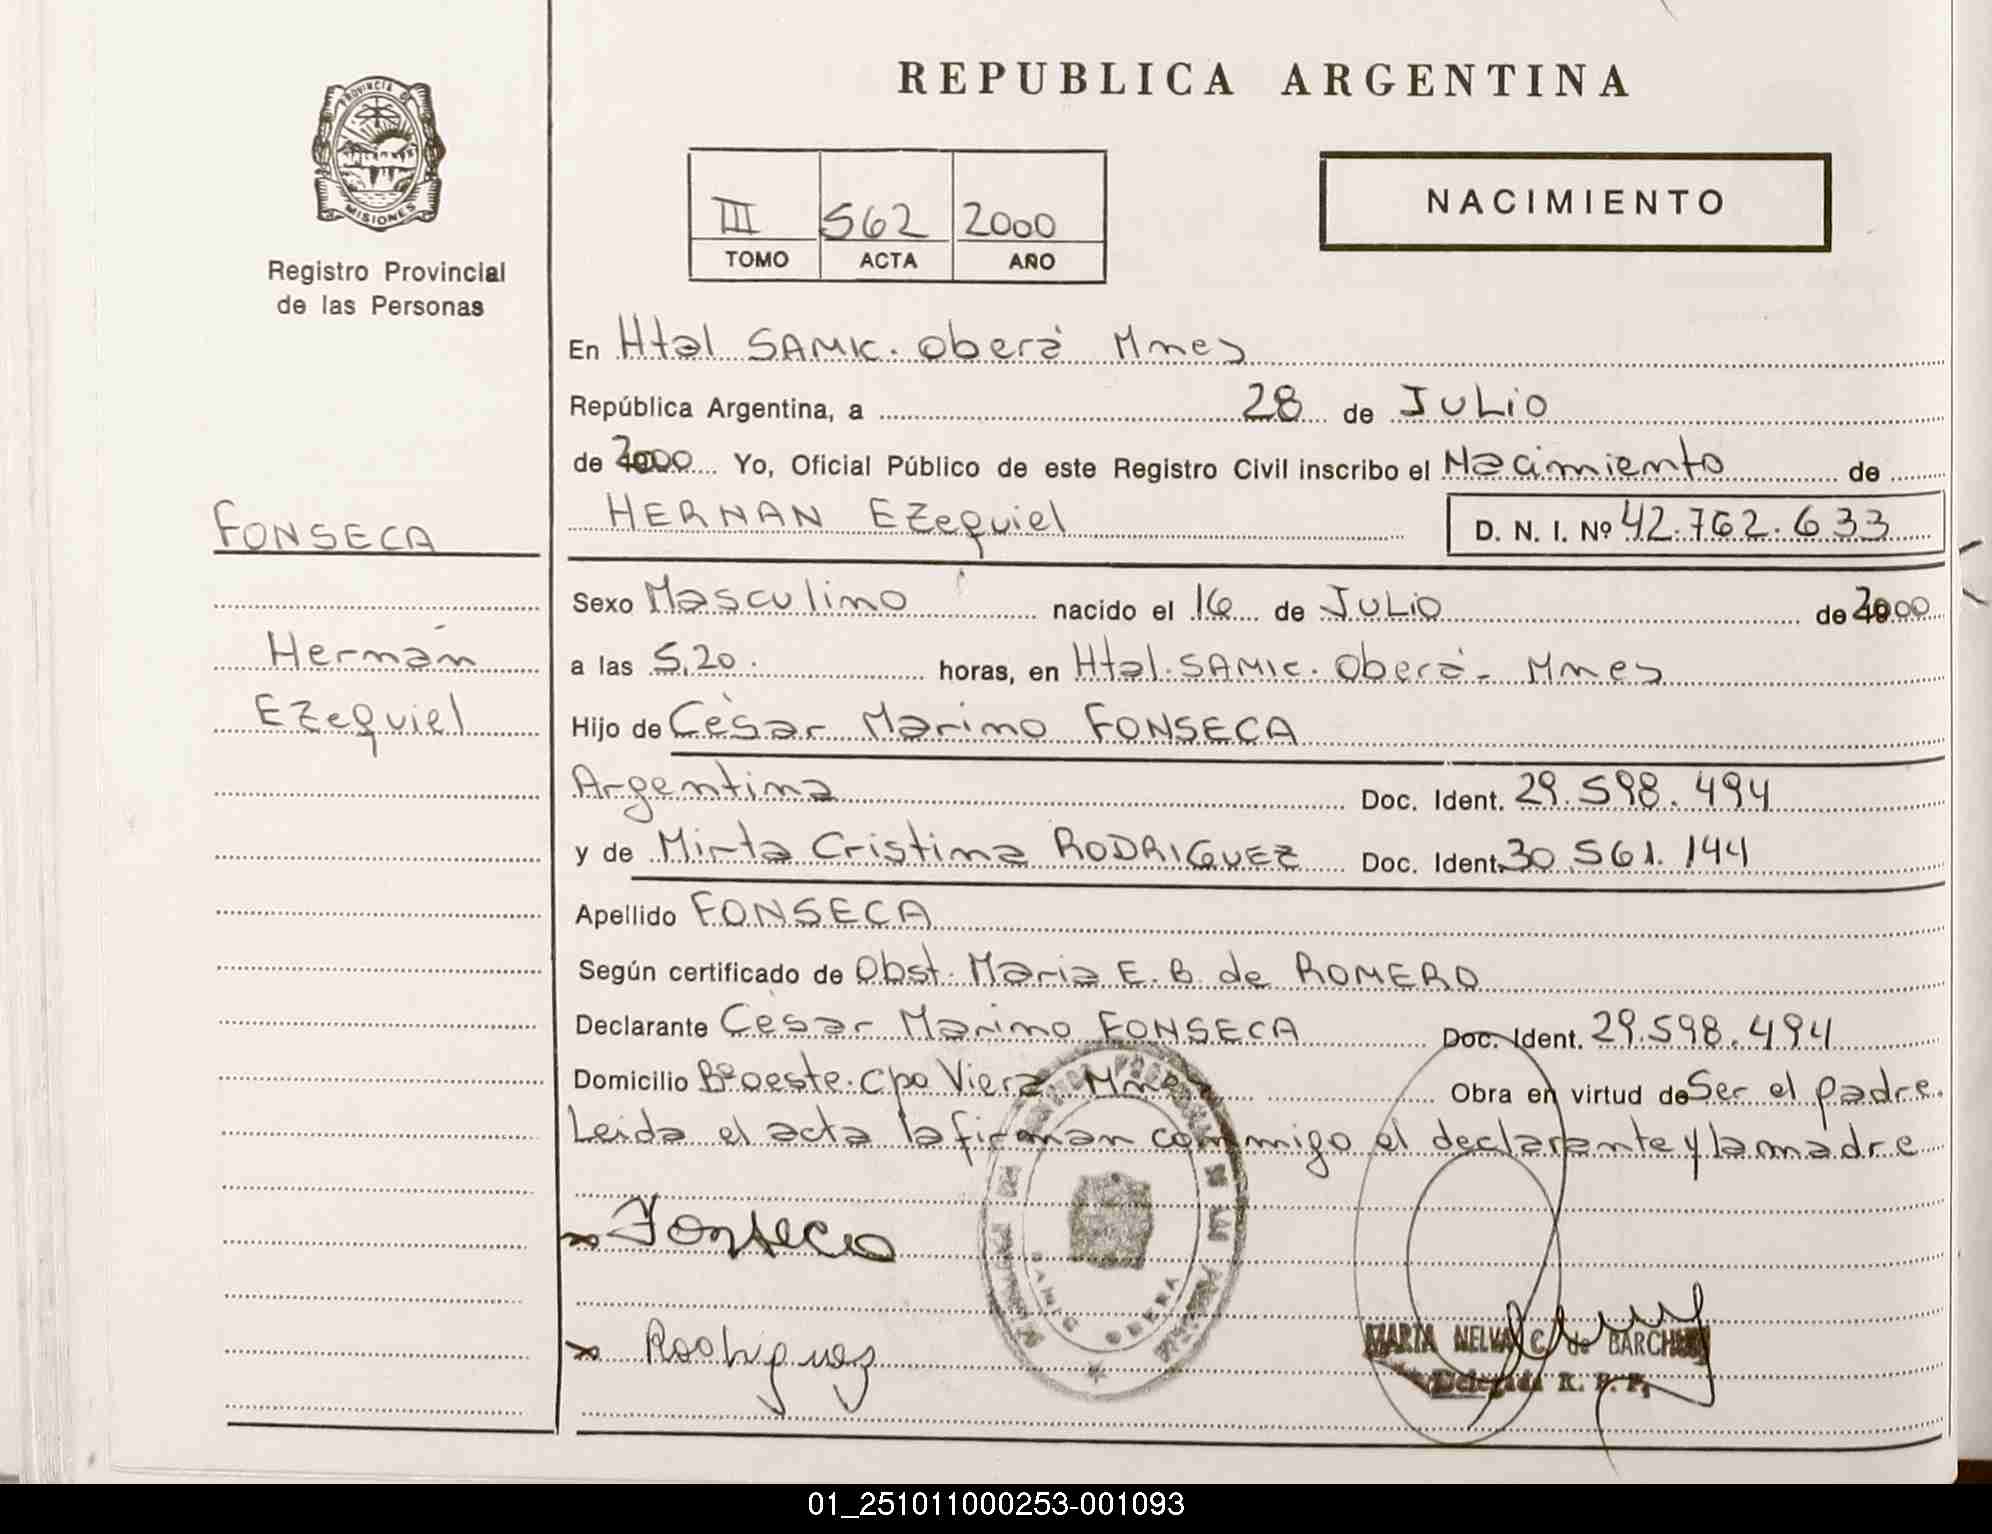 REPUBLICA ARGENTINA
PROVINCIA DE
MISIONES
Registro Provincial
de las Personas
III 562 2000
TOMO ACTA AÑO
NACIMIENTO
En Htal SAMIC. Oberá Mnes
República Argentina, a 28 de JULIO
de 2000 Yo, Oficial Público de este Registro Civil inscribo el Nacimiento de
HERNAN Ezequiel D. N. I. Nº 42.762.633
FONSECA
Hernán
Ezequiel
Sexo Masculino nacido el 16 de JULIO de 2000
a las 5,20. horas, en Htal. SAMIC. Oberá - Mnes
Hijo de César Marino FONSECA
Argentina Doc. Ident. 29.598.494
y de Mirta Cristina RODRIGUEZ Doc. Ident. 30.561.144
Apellido FONSECA
Según certificado de Obst. Maria E. B. de ROMERO
Declarante César Marino FONSECA Doc. Ident. 29.598.494
Domicilio Bº oeste. Cpo Viera Mnes Obra en virtud de Ser el padre.
Leida el acta la firman conmigo el declarante y la madre
x Fonseca
x Rodriguez
OBERA
MARIA NELVA C. de
Delegada R. P. P.
01_251011000253-001093